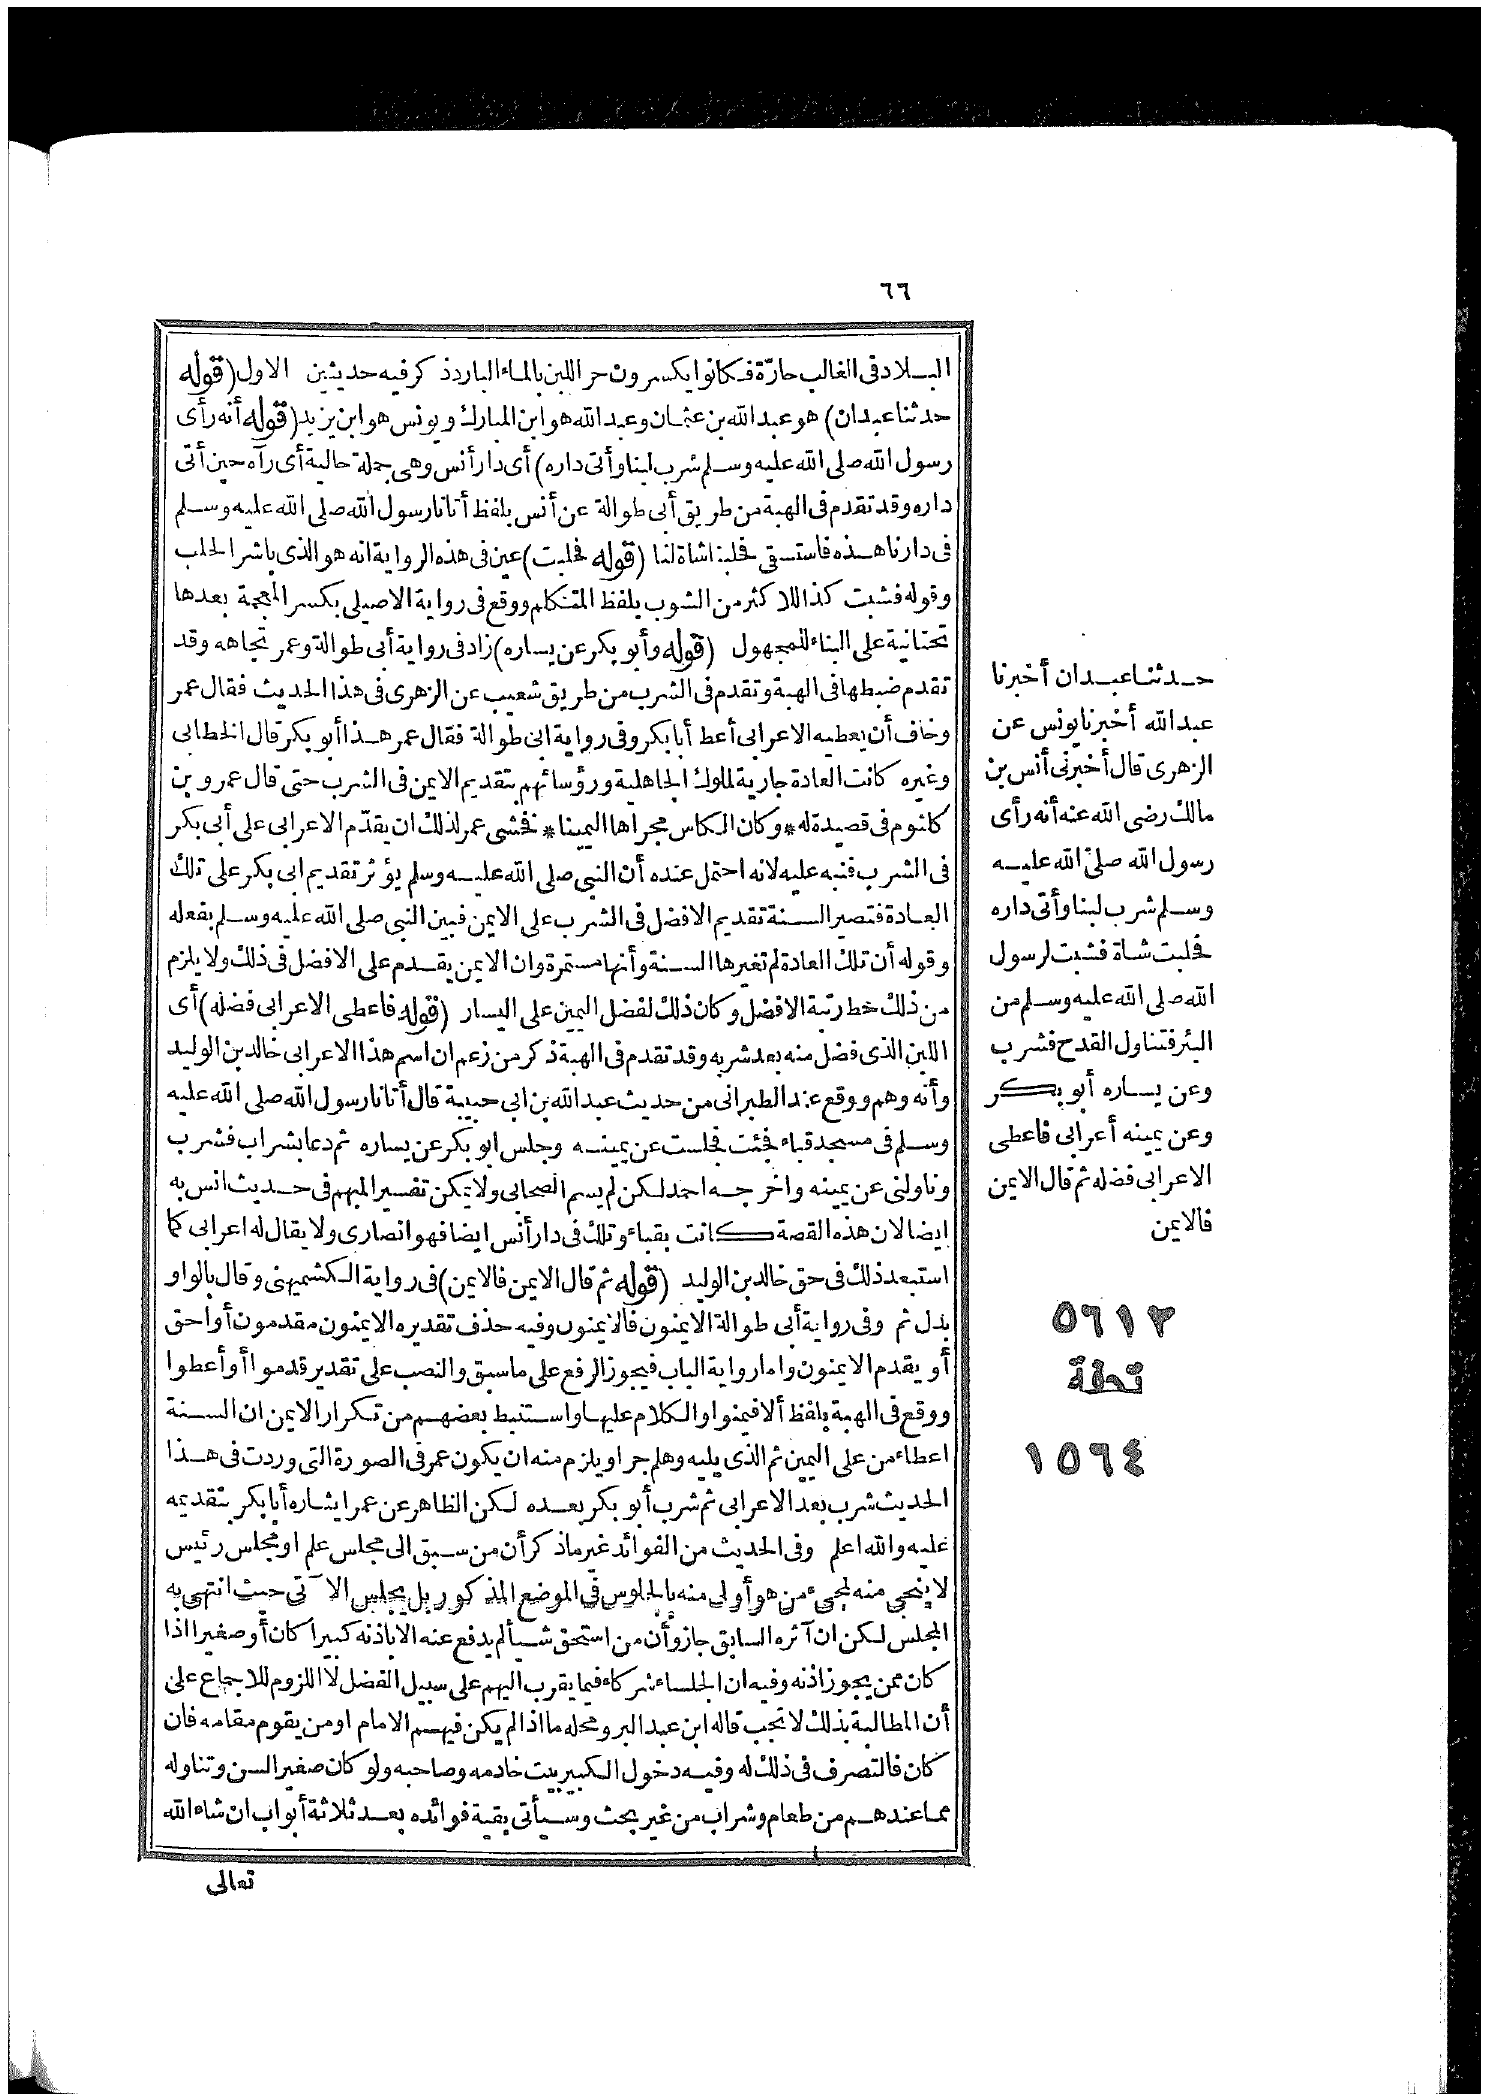 ٦٦
البلاد في الغالب حارّة فكانوا يكسرون حر اللبن بالماء البارد ذكر فيه حديثين الاول (قوله
حدثنا عبدان) هو عبد الله بن عثمان وعبد الله هو ابن المبارك ويونس هو ابن يزيد (قوله أنه رأى
رسول الله صلى الله عليه وسلم شرب لبنا وأتى داره) أى دار أنس وهى جملة حالية أى رآه حين أتى
داره وقد تقدم فى الهبة من طريق أبى طوالة عن أنس بلفظ أتانا رسول الله صلى الله عليه وسلم
فى دارنا هذه فاستسقى فحلبنا شاة لنا (قوله فحلبت) عين فى هذه الرواية انه هو الذى باشر الحلب
وقوله فشبت كذا للاكثر من الشوب بلفظ المتكلم ووقع فى رواية الاصيلى بكسر المعجمة بعدها
تحتانية على البناء للمجهول (قوله وأبو بكر عن يساره) زاد فى رواية أبى طوالة وعمر تجاهه وقد
تقدم ضبطها فى الهبة وتقدم فى الشرب من طريق شعيب عن الزهرى فى هذا الحديث فقال عمر
وخاف أن يعطيه الاعرابى أعط أبا بكر وفى رواية ابى طوالة فقال عمر هذا أبو بكر قال الخطابى
وغيره كانت العادة جارية لملوك الجاهلية ورؤسائهم بتقديم الايمن فى الشرب حتى قال عمرو بن
كلثوم فى قصيدة له * وكان الكاس مجراها اليمينا * فخشى عمر لذلك ان يقدّم الاعرابى على أبى بكر
فى الشرب فنبه عليه لانه احتمل عنده أن النبي صلى الله عليه وسلم يؤثر تقديم ابى بكر على تلك
العادة فتصير السنة تقديم الافضل فى الشرب على الايمن فبين النبي صلى الله عليه وسلم بفعله
وقوله أن تلك العادة لم تغيرها السنة وأنها مستمرة وان الايمن يقدم على الافضل فى ذلك ولا يلزم
من ذلك حط رتبة الافضل وكان ذلك لفضل اليمين على اليسار (قوله فاعطى الاعرابى فضله) أى
اللبن الذى فضل منه بعد شربه وقد تقدم فى الهبة ذكر من زعم ان اسم هذا الاعرابى خالد بن الوليد
وأنه وهم ووقع عند الطبرانى من حديث عبد الله بن ابى حبيبة قال أتانا رسول الله صلى الله عليه
وسلم فى مسجد قباء فجئت فجلست عن يمينه وجلس ابو بكر عن يساره ثم دعا بشراب فشرب
وناولنى عن يمينه واخرجه احمد لكن لم يسم الصحابى ولا يمكن تفسير المبهم فى حديث انس به
ايضا لان هذه القصة كانت بقباء وتلك فى دار أنس ايضا فهو انصارى ولا يقال له اعرابى كما
استبعد ذلك فى حق خالد بن الوليد (قوله ثم قال الايمن فالايمن) فى رواية الكشميهنى وقال بالواو
بدل ثم وفى رواية أبى طوالة الايمنون فالايمنون وفيه حذف تقديره الايمنون مقدمون أو احق
أو يقدم الايمنون واما رواية الباب فيجوز الرفع على ما سبق والنصب على تقدير قدموا أو أعطوا
ووقع فى الهبة بلفظ ألا فيمنوا والكلام عليها واستنبط بعضهم من تكرار الايمن ان السنة
اعطاء من على اليمين ثم الذى يليه وهلم جرا ويلزم منه ان يكون عمر فى الصورة التى وردت فى هذا
الحديث شرب بعد الاعرابى ثم شرب أبو بكر بعده لكن الظاهر عن عمر ايشاره أبا بكر بتقديمه
عليه والله اعلم وفى الحديث من الفوائد غير ما ذكر أن من سبق الى مجلس علم او مجلس رئيس
لا ينحى منه لمجىء من هو أولى منه بالجلوس فى الموضع المذكور بل يجلس الآتى حيث انتهى به
المجلس لكن ان آثره السابق جاز وأن من استحق شيأ لم يدفع عنه الا باذنه كبيرا كان أو صغيرا اذا
كان ممن يجوز اذنه وفيه ان الجلساء شركاء فيما يقرب اليهم على سبيل الفضل لا اللزوم للاجماع على
أن المطالبة بذلك لا تجب قاله ابن عبد البر ومحله ما اذا لم يكن فيهم الامام او من يقوم مقامه فان
كان فالتصرف فى ذلك له وفيه دخول الكبير بيت خادمه وصاحبه ولو كان صغير السن وتناوله
مما عندهم من طعام وشراب من غير بحث وسيأتى بقية فوائده بعد ثلاثة أبواب ان شاء الله
تعالى
حدثنا عبدان أخبرنا
عبد الله أخبرنا يونس عن
الزهرى قال أخبرنى أنس بن
مالك رضى الله عنه أنه رأى
رسول الله صلى الله عليه
وسلم شرب لبنا وأتى داره
فحلبت شاة فشبت لرسول
الله صلى الله عليه وسلم من
البئر فتناول القدح فشرب
وعن يساره أبو بكر
وعن يمينه أعرابى فاعطى
الاعرابى فضله ثم قال الايمن
فالايمن
٥٦١٢
تحفة
١٥٦٤